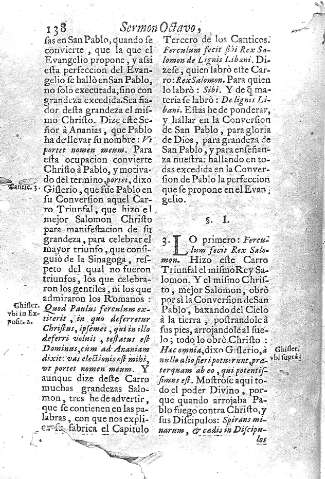 138 Sermon Octavo,
sas en San Pablo, quando se
convierte, que la que el
Evangelio propone, y assi
esta perfeccion del Evan-
gelio se halló en San Pablo,
no solo executada, sino con
grandeza excedida. Sea fia-
dor desta grandeza el mis-
mo Christo. Dize este Se-
ñor à Ananias, que Pablo
ha de llevar su nombre: Vt
portet nomen meum. Para
esta ocupacion convierte
Christo à Pablo, y motiva-
do del termino, portet, dixo
Gislerio, que fue Pablo en
su Conversion aquel Car-
ro Triunfal, que hizo el
mejor Salomon Christo
para manifestacion de su
grandeza, para celebrar el
mayor triunfo, que consi-
guiò de la Sinagoga, res-
peto del qual no fueron
triunfos, los que celebra-
ron los gentiles, ni los que
admiraron los Romanos:
Quod Paulus ferculum ex-
titerit, in quo deferretur
Christus, ipsemet, qui in illo
deferri voluit, testatus est
Dominus, cum ad Ananiam
dixit: vas electionis est mihi,
vt portet nomen meum. Y
aunque dize deste Carro
muchas grandezas Salo-
mon, tres he de advertir,
que se contienen en las pa-
labras, con que nos expli-
ca su fabrica el Capitulo
Ghisler.
vbi in Ex-
Tercero de los Canticos.
Ferculum fecit sibi Rex Sa-
lomon de Lignis Libani. Di-
zese, quien labrò este Car-
ro: Rex Salomon. Para quien
lo labrò: Sibi. Y de q̃ ma-
teria se labrò: De lignis Li-
bani. Estas he de ponderar,
y hallar en la Conversion
de San Pablo, para gloria
de Dios, para grandeza de
San Pablo, y para enseñan-
za nuestra: hallando en to-
das excedida en la Conver-
sion de Pablo la perfeccion
que se propone en el Evan-
gelio.
§. I.
3. LO primero: Fercu-
lum fecit Rex Salo-
mon. Hizo este Carro
Triunfal el mismo Rey Sa-
lomon. Y el mismo Chris-
to, mejor Salomon, obrò
por si la Conversion de San
Pablo, baxando del Cielo
à la tierra, postrandole à
sus pies, arrojandole al sue-
lo; todo lo obrò Christo:
Hac omnia, dixo Gislerio, à
nullo alio fieri potuerunt, præ-
terquam ab eo, qui potentis-
simus est. Mostròse aqui to-
do el poder Divino, por-
que quando arrojaba Pa-
blo fuego contra Christo, y
sus Discipulos: Spirans mi-
narum, & cædis in Discipu-
los
Ghisler.
vbi suprà.